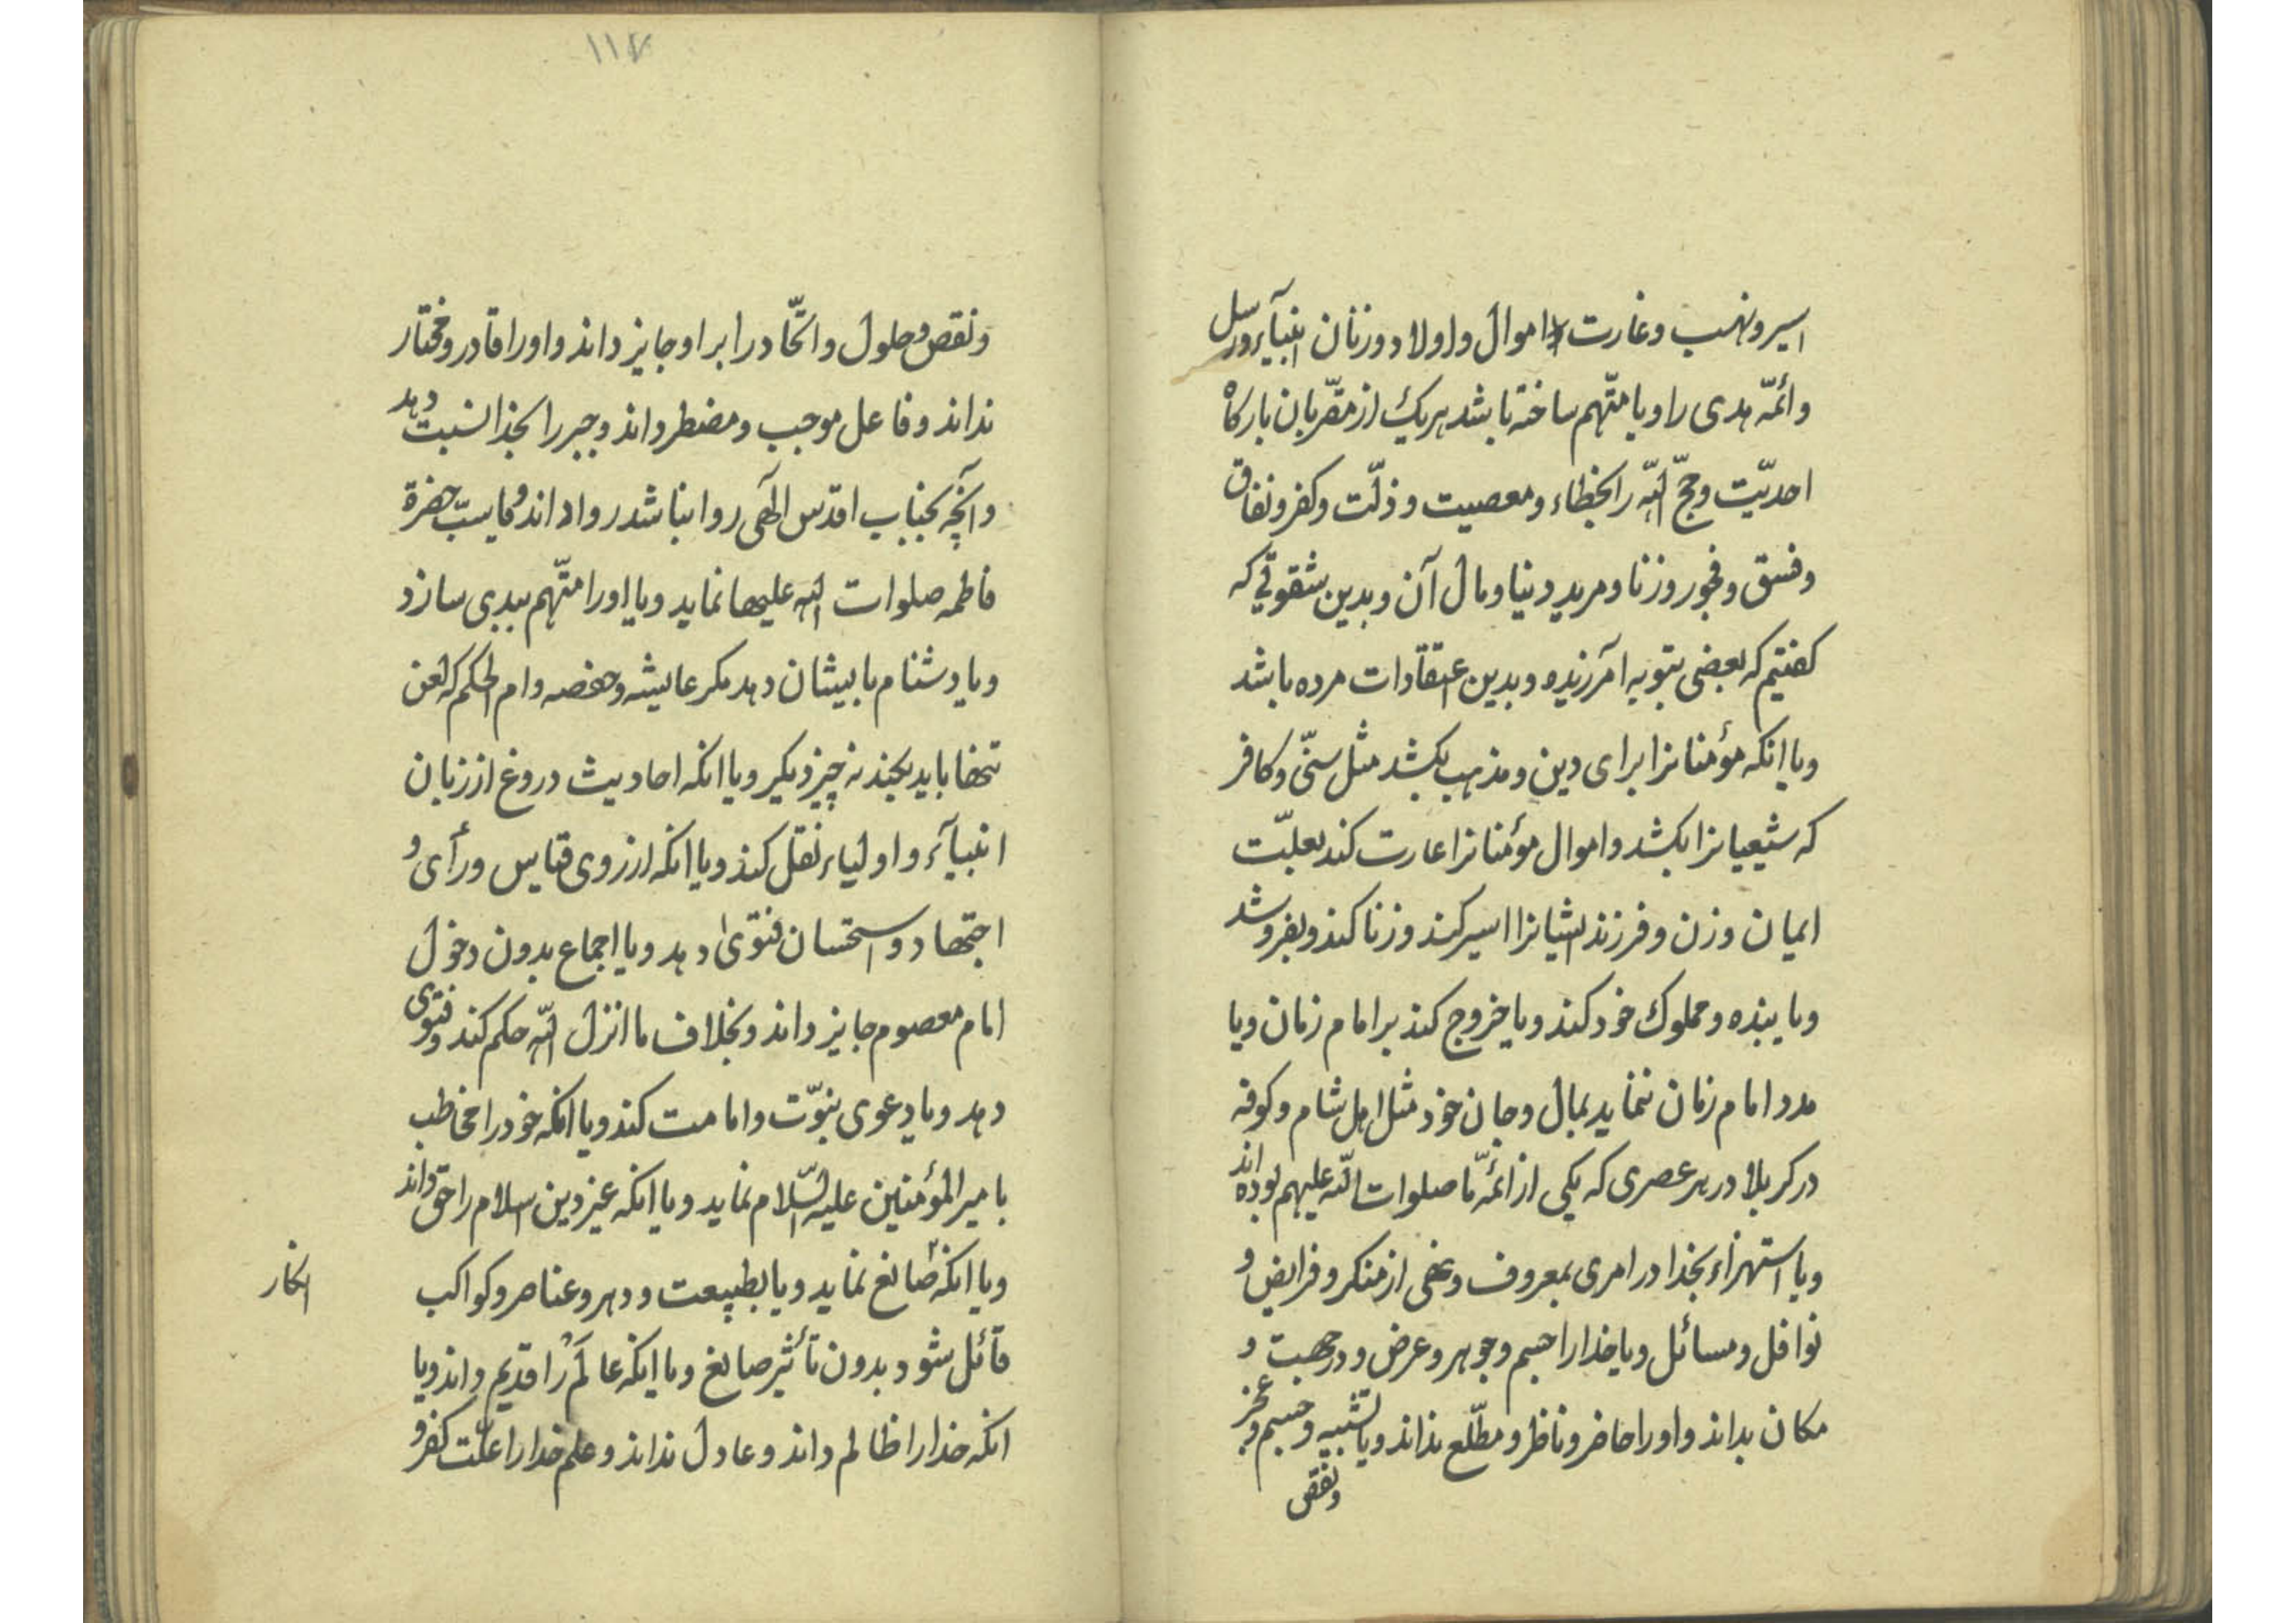 اسیر و نهب و غارت اموال و اولاد و زنان انبیآء و رسل
و ائمّه هدی را و یا متّهم ساخته باشد هریک از مقّربان بارکاه
احدیّت و حجج اللّه را بخطاء و معصیت و ذلّت و کفر و نفاق
و فسق و فجور و زنا و مرید دنیا و مال آن و بدین شقوتی که
کفتیم که بعضی بتوبه آمرزیده و بدین عتقادات مرده باشد
و یا انکه مؤمنانرا برای دین و مذهب بکشد مثل سنّی و کافر
که شیعیانرا بکشد و اموال مؤمنانرا غارت کند بعلّت
ایمان و زن و فرزند ایشانرا اسیر کند و زنا کند و بفروشد
و یا بنده و مملوک خود کند و یا خروج کند بر امام زمان و یا
مدد امام زمان ننماید بمال و جان خود مثل اهل شام و کوفه
در کربلا در هر عصری که یکی از ائمّه ما صلوات اللّه علیهم بوده اند
و یا استهزاء بخدا در امری بمعروف و نهی از منکر و فرایض و
نوافل و مسائل و یا خدا را جسم و جوهر و عرض و در جهت و
مکان بداند و او را حاضر و ناظر و مطّلع نداند و یا تشبیه و جسم و عجز
و نقص
۱۱۷
و نقص و حلول و اتّحاد را بر او جایز داند و او را قادر و مختار
نداند و فاعل موجب و مضطر داند و جبر را بخدا نسبت دهد
و آنچه بجناب اقدس الهی روا نباشد روا داند و یا سبّ حضرة
فاطمه صلوات اللّه علیها نماید و یا او را متّهم ببدی سازد
و یا دشنام بایشان دهد مکر عایشه و حفصه و ام الحکم که لعن
تنها باید بکند نه چیز دیکر و یا انکه احادیث دروغ از زبان
انبیآء و اولیاء نقل کند و یا انکه از روی قیاس و رأی و
اجتهاد و استحسان فتوی دهد و یا اجماع بدون دخول
امام معصوم جایز داند و بخلاف ما انزل اللّه حکم کند و فتوی
دهد و یا دعوی نبوّت و امامت کند و یا انکه خود را مخاطب
بامیر المؤمنین علیه السّلام نماید و یا انکه غیر دین اسلام را حق داند
و یا انکه صانع نماید و یا بطبیعت و دهر و عناصر و کواکب
انکار
قائل شود بدون تأثیر صانع و یا اینکه عالَمْ را قدیم داند و یا
انکه خدا را ظالم داند و عادل نداند و علم خدا را علّت کفر و